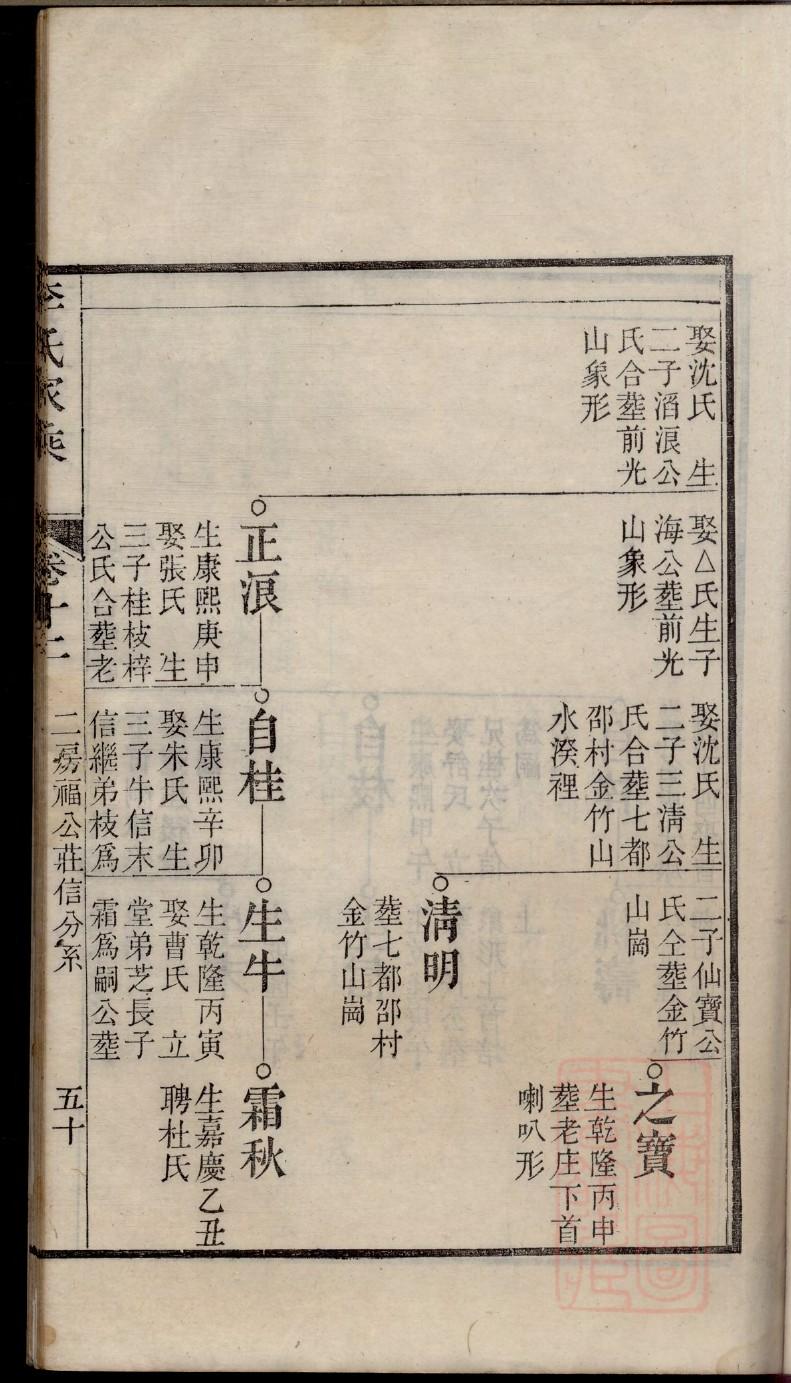 娶沈氏　生
二子滔浪公
氏合塟前光
山象形
娶△氏生子
海公塟前光
山象形
娶沈氏　生
二子三淸公
氏合塟七都
邵村金竹山
水湀裡
二子仙寶公
氏仝塟金竹
山崗
之寶
生乾隆丙申
塟老庄下首
喇叭形
淸明
塟七都邵村
金竹山崗
正浪
生康熙庚申
娶張氏　生
三子桂枝梓
公氏合塟老
自桂
生康熙辛卯
娶朱氏　生
三子牛信末
信繼弟枝爲
生牛
生乾隆丙寅
娶曹氏　立
堂弟芝長子
霜爲嗣公塟
霜秋
生嘉慶乙丑
聘杜氏
李氏家乘
卷十二
二房福公莊信分系
五十